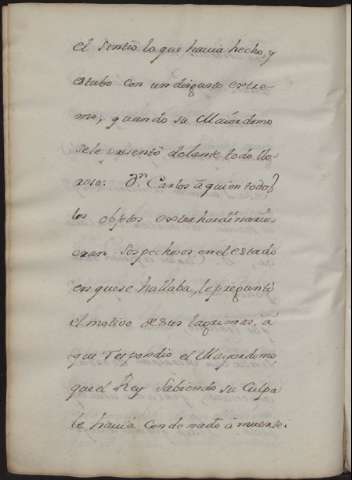 el sentio lo que havia hecho, y
estabo con un disgusto extre-
mo, y quando su Maiordomo
se le presentó delante todo llo-
roso: Dn. Carlos á quien todos
los objetos extrahordinarios
eran sospechosos en el estado
en que se hallaba, le preguntó
el motivo de sus lagrimas, á
que respondio el Maiordomo
que el Rey sabiendo su culpa
le havia condenado á muerte.